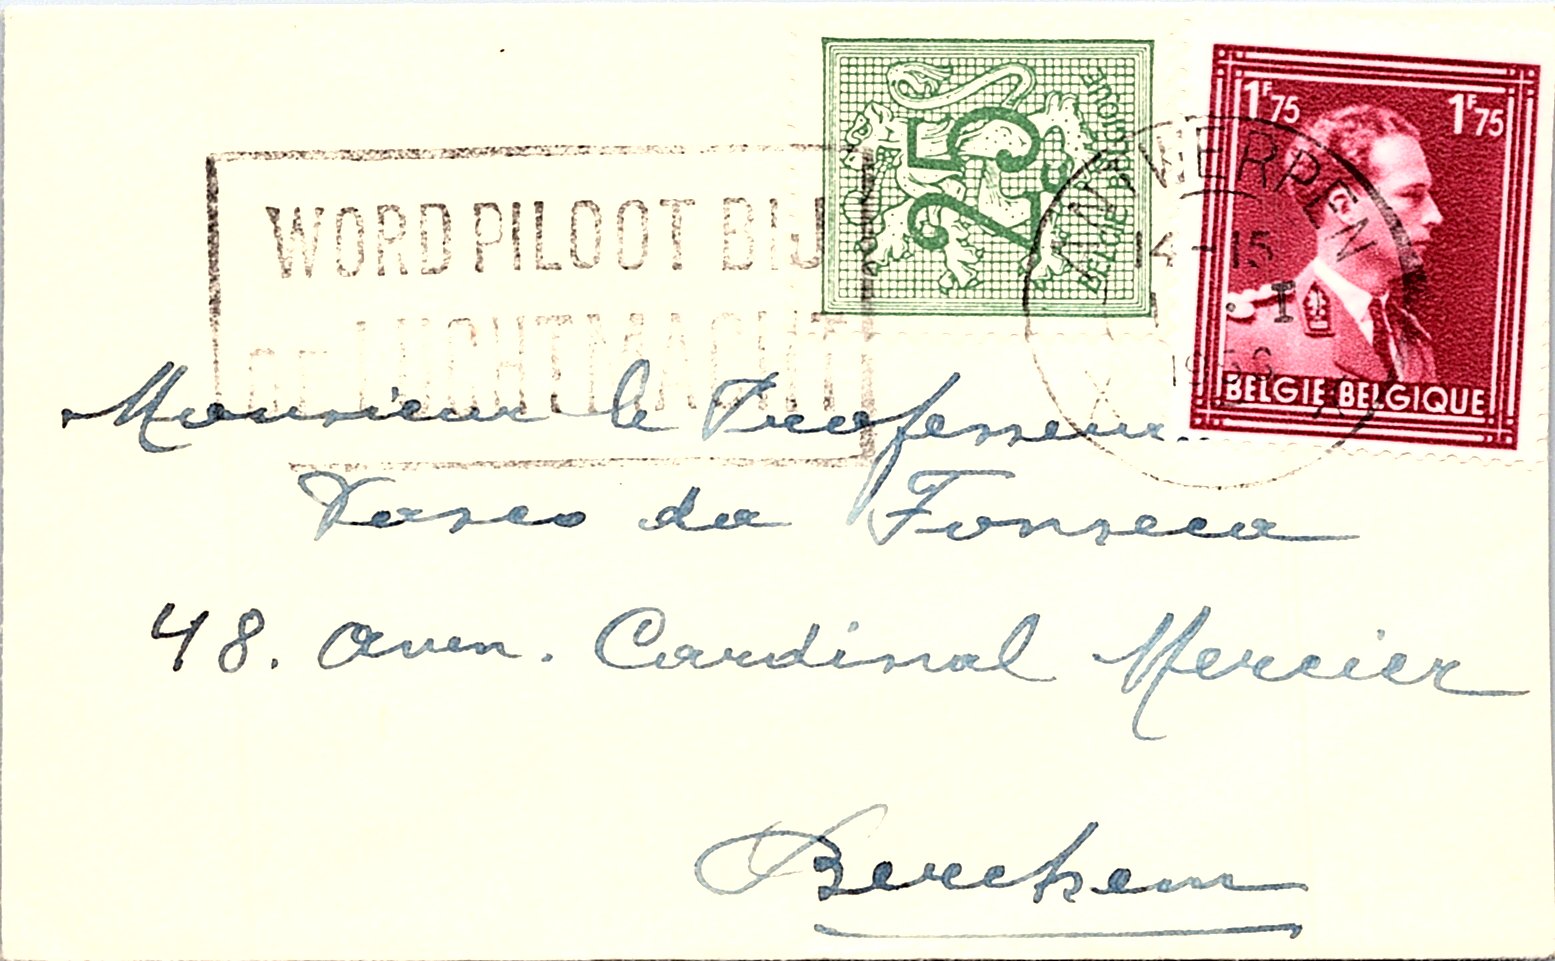 WORD PILOOT BIJ
DE LUCHTMACHT
25c
BELGIE BELGIQUE
1F75 1F75
BELGIE-BELGIQUE
ANTWERPEN
14-15
I
1956
Monsieur le Professeur
Vasco da Fonseca
48. Aven. Cardinal Mercier
Berchem